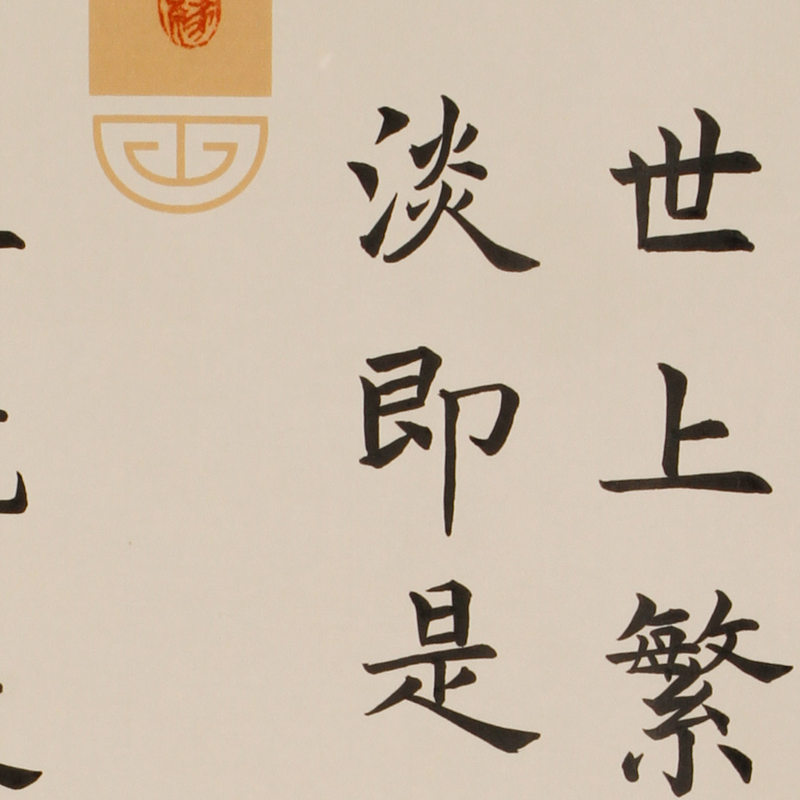 世上繁
淡即是